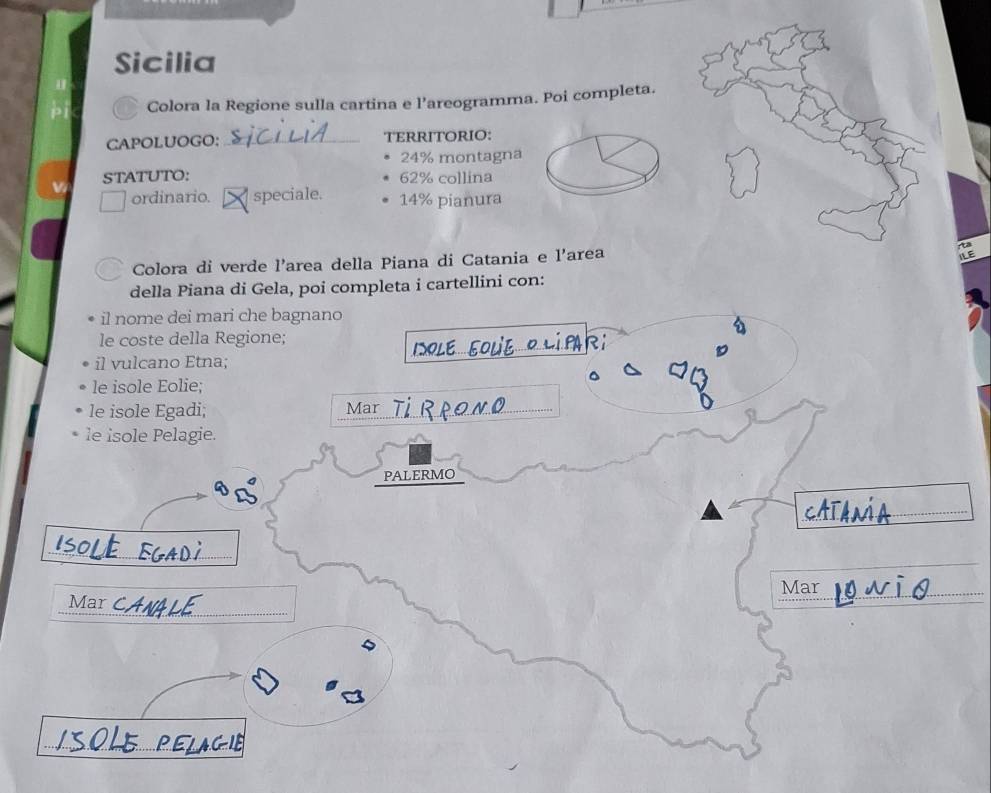 Sicilia
Colora la Regione sulla cartina e l'areogramma. Poi completa.
CAPOLUOGO: SICILIA
TERRITORIO:
• 24% montagna
• 62% collina
• 14% pianura
STATUTO:
ordinario. speciale.
Colora di verde l'area della Piana di Catania e l'area
della Piana di Gela, poi completa i cartellini con:
• il nome dei mari che bagnano
le coste della Regione;
• il vulcano Etna;
• le isole Eolie;
• le isole Egadi;
• le isole Pelagie.
ISOLE EOLIE O LIPARI
Mar TIRRONO
PALERMO
CATANIA
ISOLE EGADI
Mar IONIO
Mar CANALE
ISOLE PELAGIE